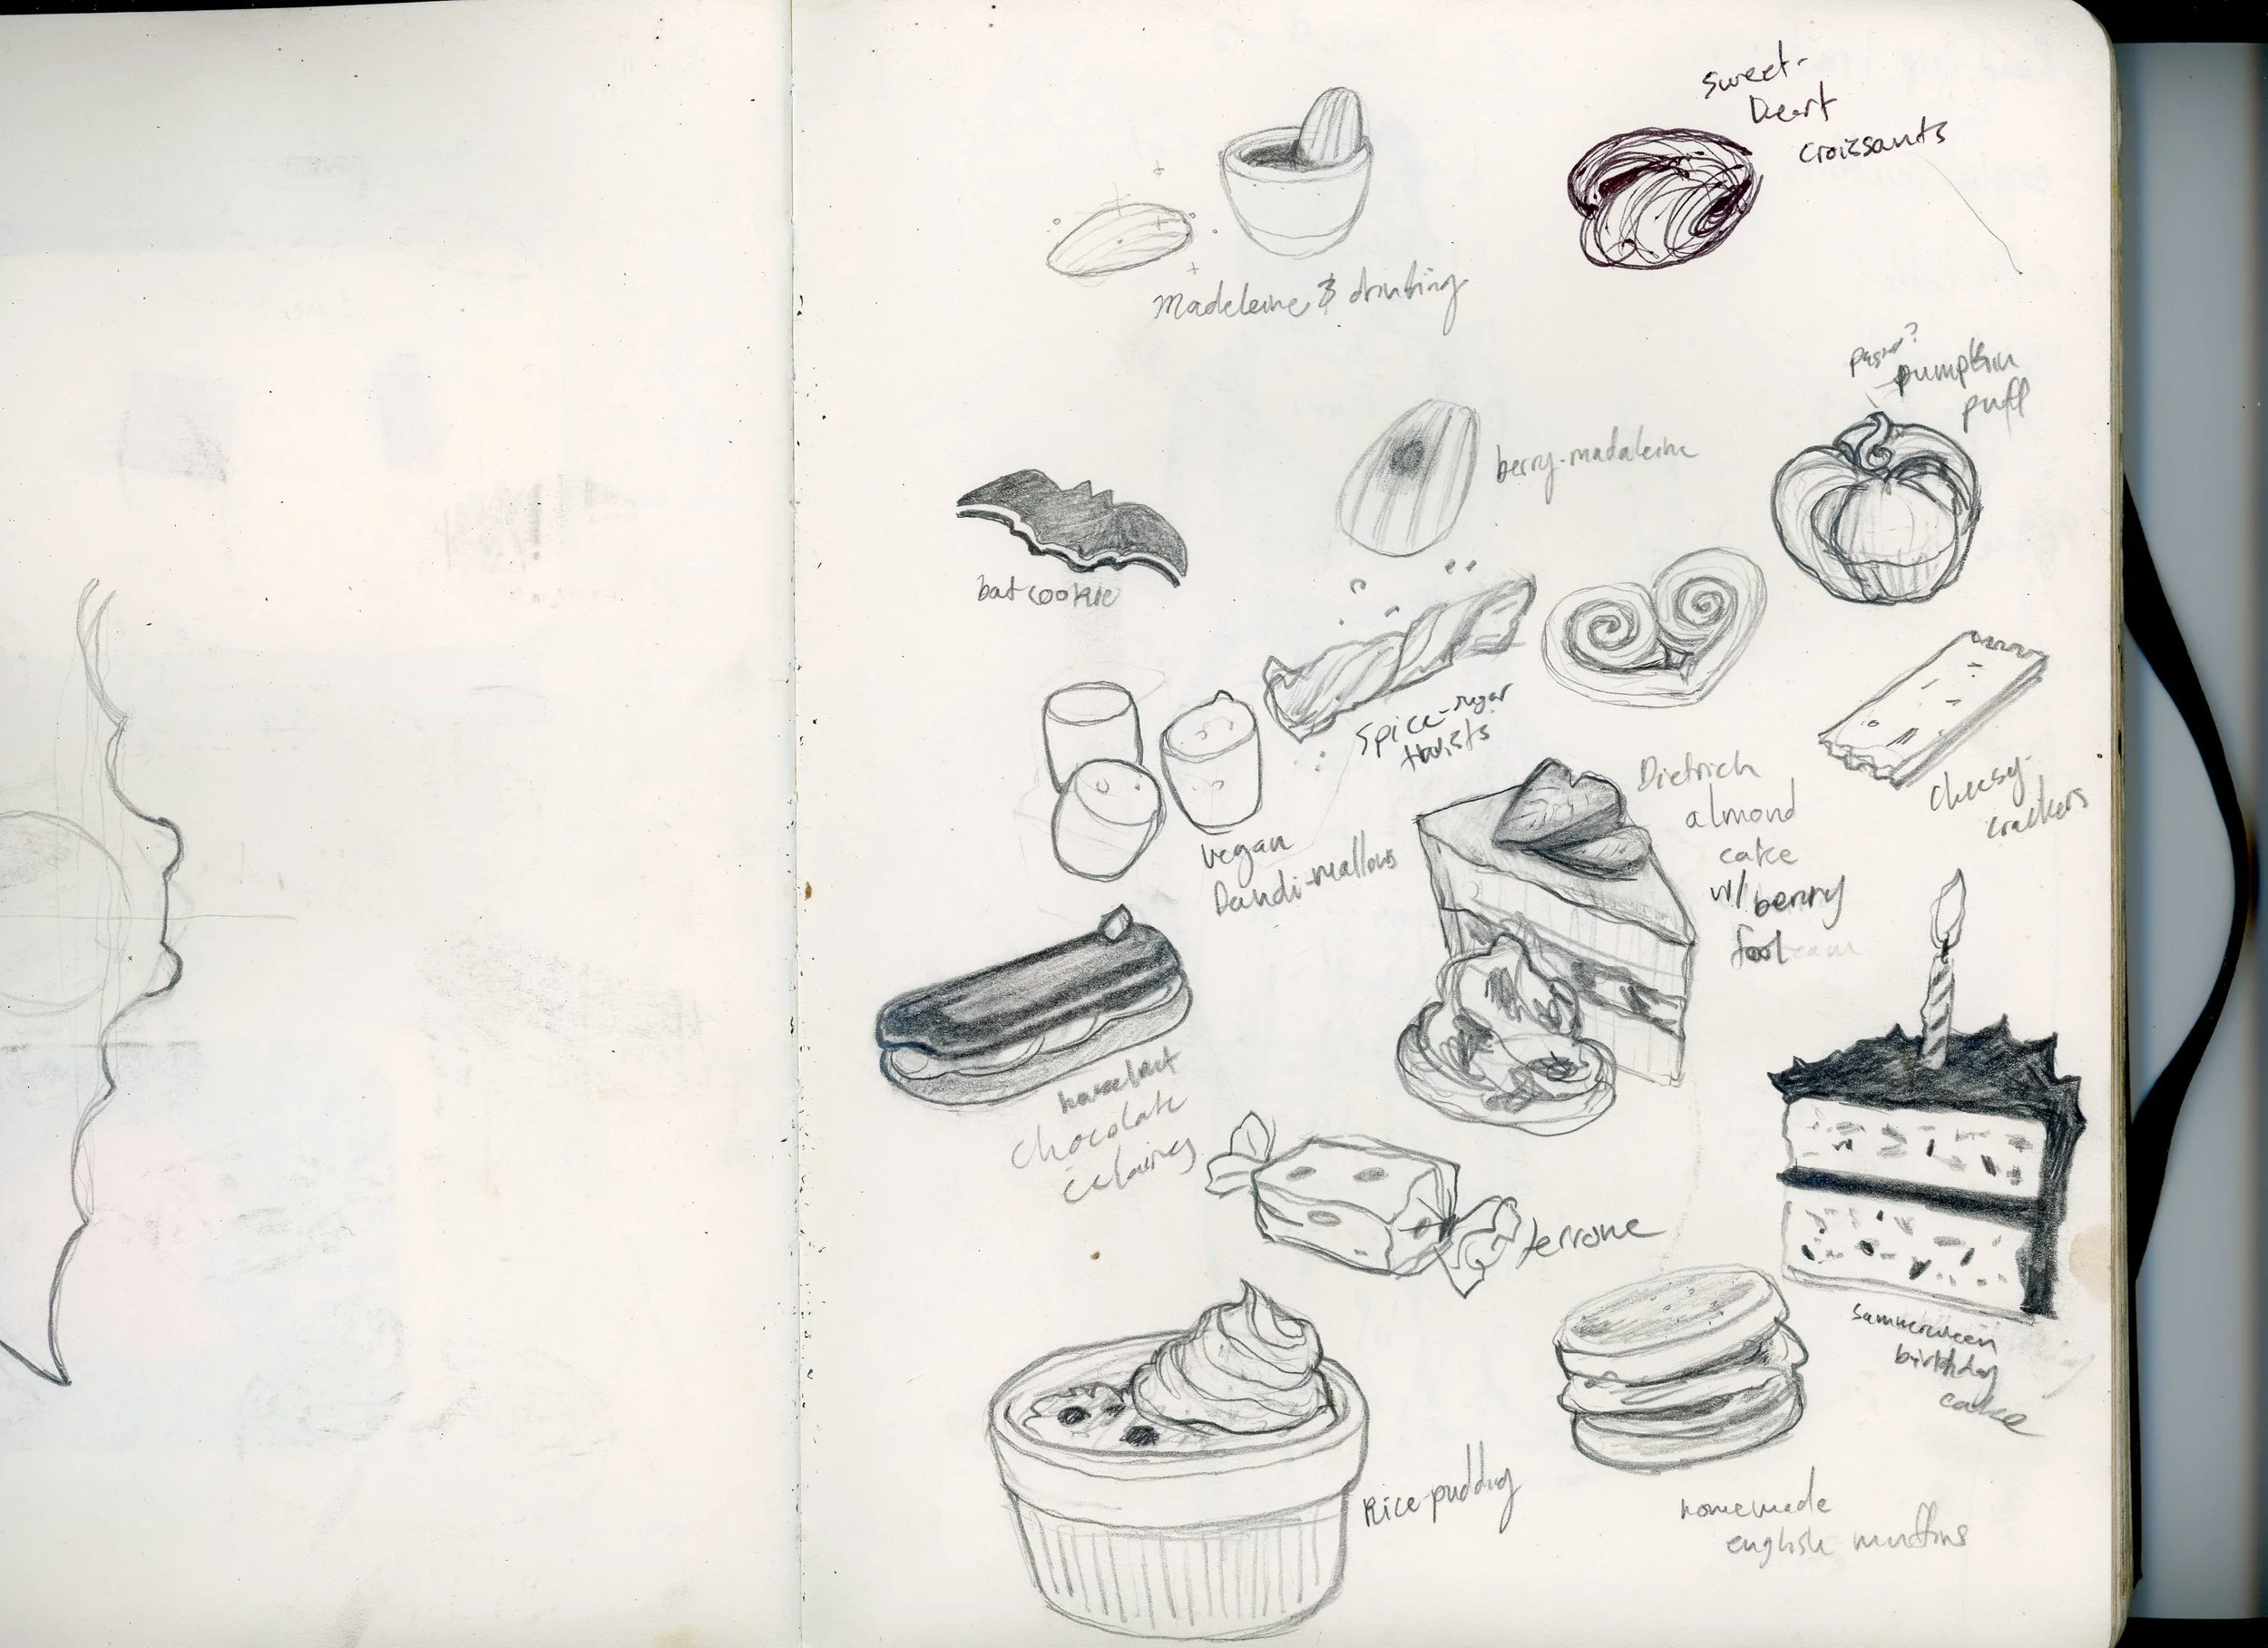 sweet-
heart
croissants
Madeleine & drinking
pumpkin
puff
berry-madaleine
bat cookie
spice-sugar
twists
cheesy-
crackers
vegan
Dandi-mallows
Dietrich
almond
cake
w/ berry
fool
hazelnut
chocolate
eclairs
terrone
summerween
birthday
cake
Rice-pudding
homemade
english muffins